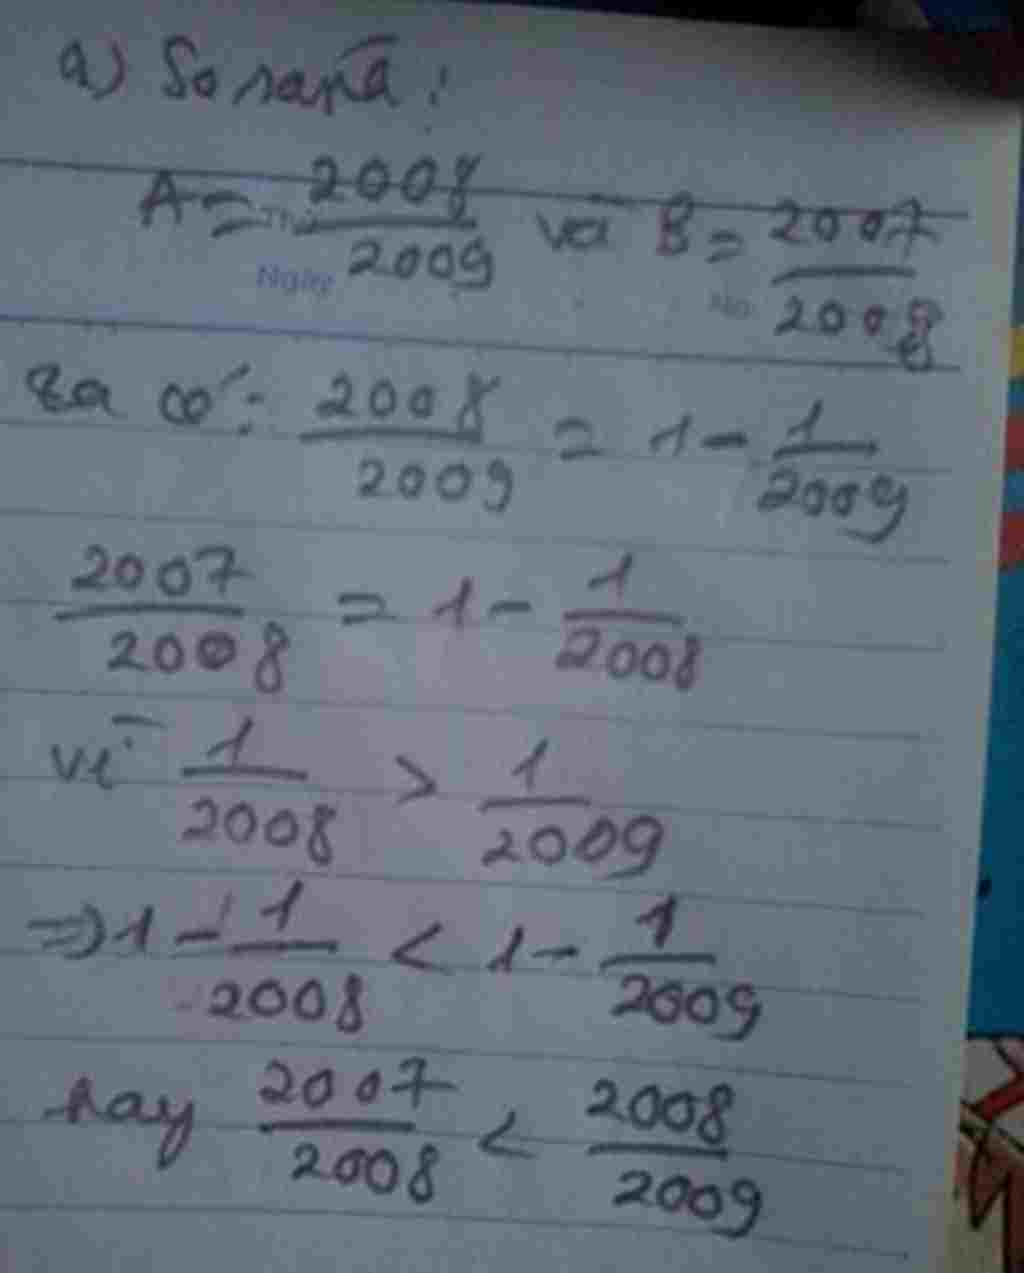 a) So sánh :
A = 2008/2009 và B = 2007/2008
Ngày No
Ta có : 2008/2009 = 1 - 1/2009
2007/2008 = 1 - 1/2008
vì 1/2008 > 1/2009
=> 1 - 1/2008 < 1 - 1/2009
hay 2007/2008 < 2008/2009